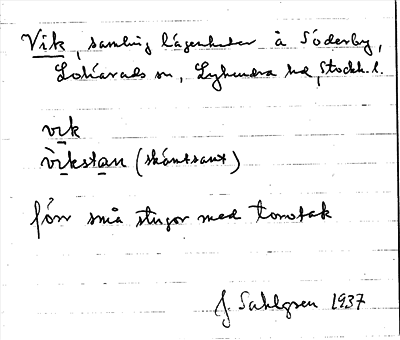 Vik, samling lägenheter å Söderby,
Lohärads sn, Lyhundra hd, Stockh. l.
vik
vìkstan (skämtsamt)
förr små stugor med torvtak
J Sahlgren 1937